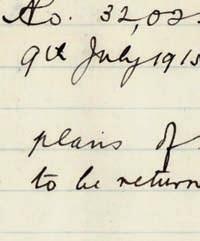 No. 32,02
9th July 1915
plans of
to be return